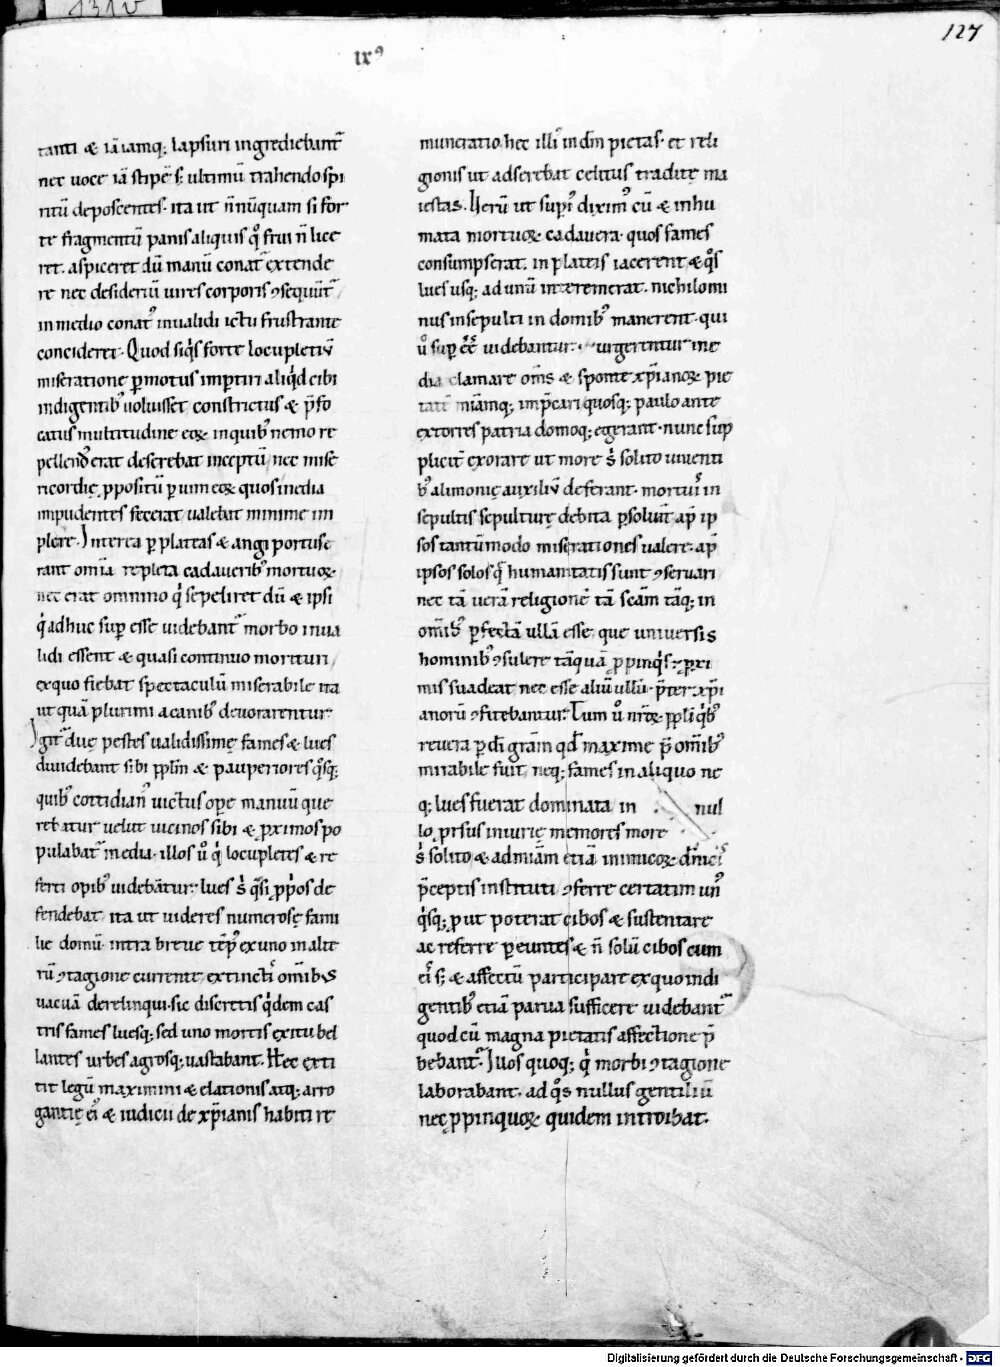 131v
127
ixꝰ
tanti & iā iamq; lapsuri ingrediebant᷑
nec uoce iā stipē s; ultimū trahendo spi
ritū deposcentes. ita ut n̄ nūquam si for
te fragmentū panis aliquis qͦ frui n̄ lice
ret. aspiceret dū manū conat᷑ extende
re nec desideriū uires corporis ꝯsequūt᷑
in medio conatꝰ inualidi ictu frustrante
concideret. Quod siqͥs forte locupletiū
miseratione ꝑmotus impertiri aliqͥd cibi
indigentibꝰ uoluisset constrictus & p̄fo
catus multitudine eoꝝ in quibꝰ nemo re
pellendꝰ erat deserebat inceptū nec mise
ricordię ꝓpositū ꝑ uim eoꝝ quos inedia
impudentes fecerat ualebat minime im
plere. Interea ꝑ plateas & angi portus e
rant om̄ia repleta cadaueribꝰ mortuoꝝ.
nec erat omnino qͥ sepeliret dū & ipsi
qͥ adhuc suꝑ esse uidebant᷑ morbo inua
lidi essent & quasi continuo morituri
ex quo fiebat spectaculū miserabile ita
ut quā plurimi a canibꝰ deuorarentur
Igit᷑ duę pestes ualidissimę fames & lues
diuidebant sibi ppl̄m & pauperiores qͦsq;
quibꝰ cottidianꝰ uictus ope manuū que
rebatur uelut uicinos sibi & ꝓximos po
pulabat᷑ inedia. illos u̾o qͥ locupletes & re
ferti opibꝰ uidebātur. lues s̾ qͣsi ꝓpͥos de
fendebat ita ut uideres numerosę fami
lie domū intra breue tēpꝰ ex uno in alte
rū ꝯtagione currente extinctͥ om̄ibus
uacuā derelinqui. sic discretis qͥdem cas
tris fames luesq; sed uno mortis exitu bel
lantes urbes agrosq; uastabant. Hec exti
tit legū maximini & elationis atq; arro
gantię eiꝰ & iudicii de xp̄ianis habiti re
muneratio. hec illiꝰ in dm̄ pietas. et reli
gionis ut adserebat celitus traditę ma
iestas. Uerū ut supͥ diximꝰ cū & inhu
mata mortuoꝝ cadauera. quos fames
consumpserat. in plateis iacerent & qͦs
lues usq; ad unū interemerat. nichilomi
nus insepulti in domibꝰ manerent. qui
u̾o suꝑ ēē uidebantur. urgerentur ine
dia clamare om̄s & sponte xp̄ianoꝝ pie
tatē miāmq; imp̄cari quosq; paulo ante
extorres patria domoq; egerant. nunc sup
plicit̾ exorare ut more s̾ solito uiuenti
bꝰ alimonię auxiliū deferant. mortuiꝰ in
sepultis sepulturę debita ꝑsoluāt apͩ ip
sos tantūmodo miserationes ualere. apͩ
ipsos solos qͣ humanitatis sunt ꝯseruari
nec tā uerā religionē tā scām tāq; in
om̄ibꝰ ꝑfectā ullā esse. que uniuersis
hominibꝰ ꝯsulere tāquā ꝓpinqͥs. & ꝓxi
mis suadeat nec esse aliū ullū. p̄ter xp̄i
anorū ꝯfitebantur. Tum u̾o nr̄oꝝ ppl̄i qͥbꝰ
reuera ꝑ dī grām qd̄ maxime p̄ om̄ibꝰ
mirabile fuit. neq; fames in aliquo ne
q; lues fuerat dominata in nul
lo ꝓrsus iniurię memores more
s̾ solito & ad miām etiā inimicoꝝ dn̄iciͥs
p̄ceptis instituti ꝯferre certatim unꝰ
qͥsq; ꝓut poterat cibos & sustentare
ac referre ꝑeuntes & n̄ solū cibos cum
eiͥ s; & affectū participare ex quo indi
gentibꝰ etiā parua sufficere uidebant᷑
quod cū magna pietatis affectione p̄
bebant᷑. Illos quoq; qͥ morbi ꝯtagione
laborabant. ad qͦs nullus gentiliū
nec ꝓpinquoꝝ quidem introibat.
Digitalisierung gefördert durch die Deutsche Forschungsgemeinschaft - DFG